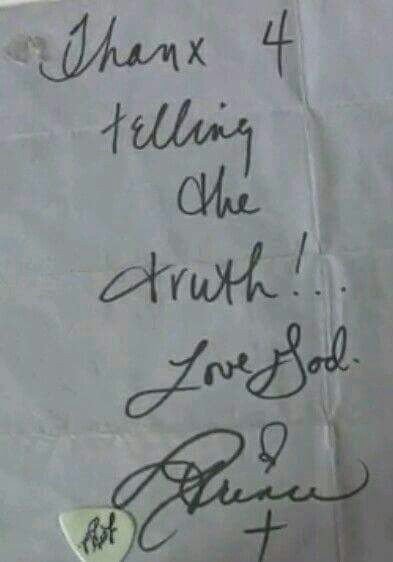 Thanx 4
telling
the
truth!...
Love God.
Prince